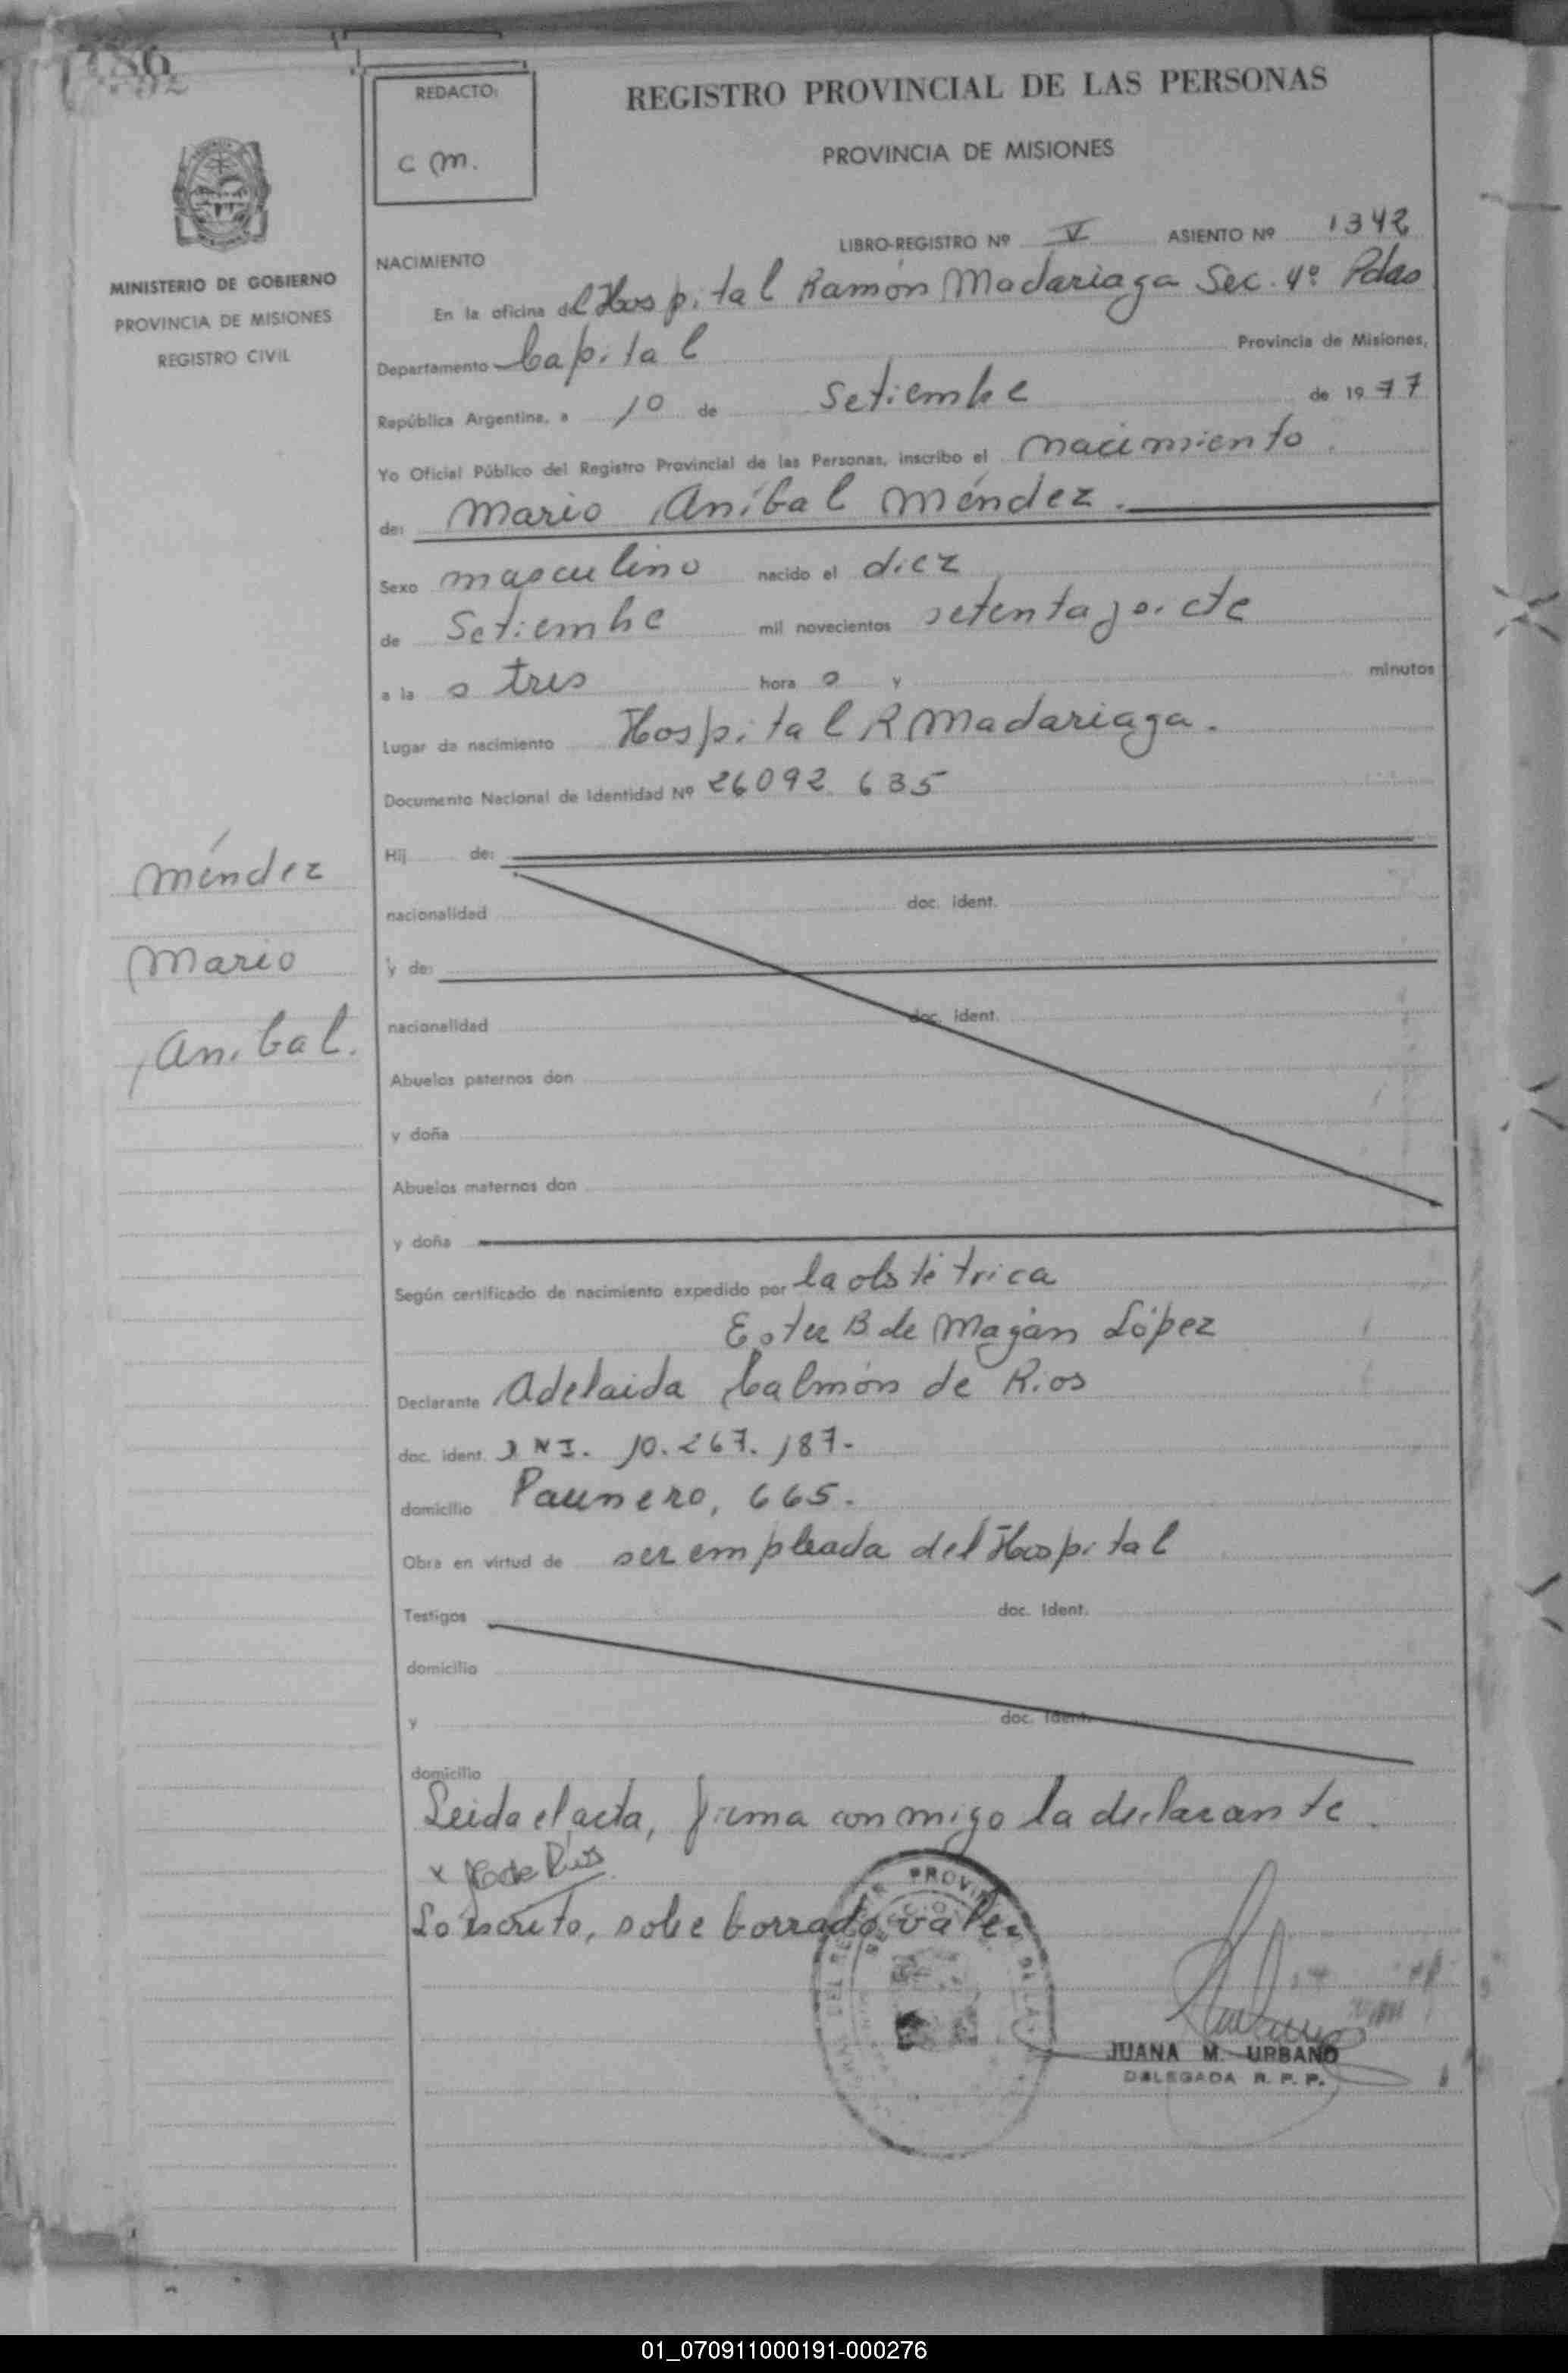 REDACTO:
C M.
REGISTRO PROVINCIAL DE LAS PERSONAS
PROVINCIA DE MISIONES
MINISTERIO DE GOBIERNO
PROVINCIA DE MISIONES
REGISTRO CIVIL
LIBRO-REGISTRO Nº V ASIENTO Nº 1342
NACIMIENTO
En la oficina del Hospital Ramón Madariaga Sec. 4º Pdas
Departamento Capital Provincia de Misiones,
República Argentina, a 10 de Setiembre de 1977
Yo Oficial Público del Registro Provincial de las Personas, inscribo el nacimiento.
de: Mario Aníbal Méndez.
Sexo masculino nacido el diez
de Setiembre mil novecientos setenta y siete
a la s tres hora s y minutos
Lugar de nacimiento Hospital R Madariaga.
Documento Nacional de Identidad Nº 26092 635
Hij de:
nacionalidad doc. ident.
y de:
nacionalidad doc. ident.
Abuelos paternos don
y doña
Abuelos maternos don
y doña
Según certificado de nacimiento expedido por la obstétrica
Ester B de Magán López
Declarante Adelaida Calmón de Rios
doc. ident. DNI. 10.267.187-
domicilio Paunero, 665.
Obra en virtud de ser empleada del Hospital
Testigos doc. Ident.
domicilio
y doc. Ident.
domicilio
Leida el acta, firma conmigo la declarante.
x de Rios
Lo escrito, sobre borrado vale
JUANA M. URBANO
DELEGADA R. P. P.
Méndez
Mario
Anibal.
01_070911000191-000276